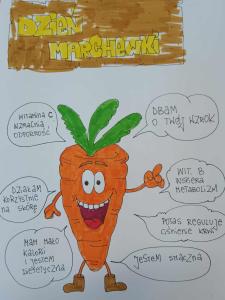 DZIEŃ
MARCHEWKI
WITAMINA C
WZMACNIA
ODPORNOŚĆ
DBAM
O TWÓJ WZROK
WIT. B
WSPIERA
METABOLIZM
DZIAŁAM
KORZYSTNIE
NA SKÓRĘ
POTAS REGULUJE
CIŚNIENIE KRWI
MAM MAŁO
KALORII
I JESTEM
DIETETYCZNA
JESTEM SMACZNA